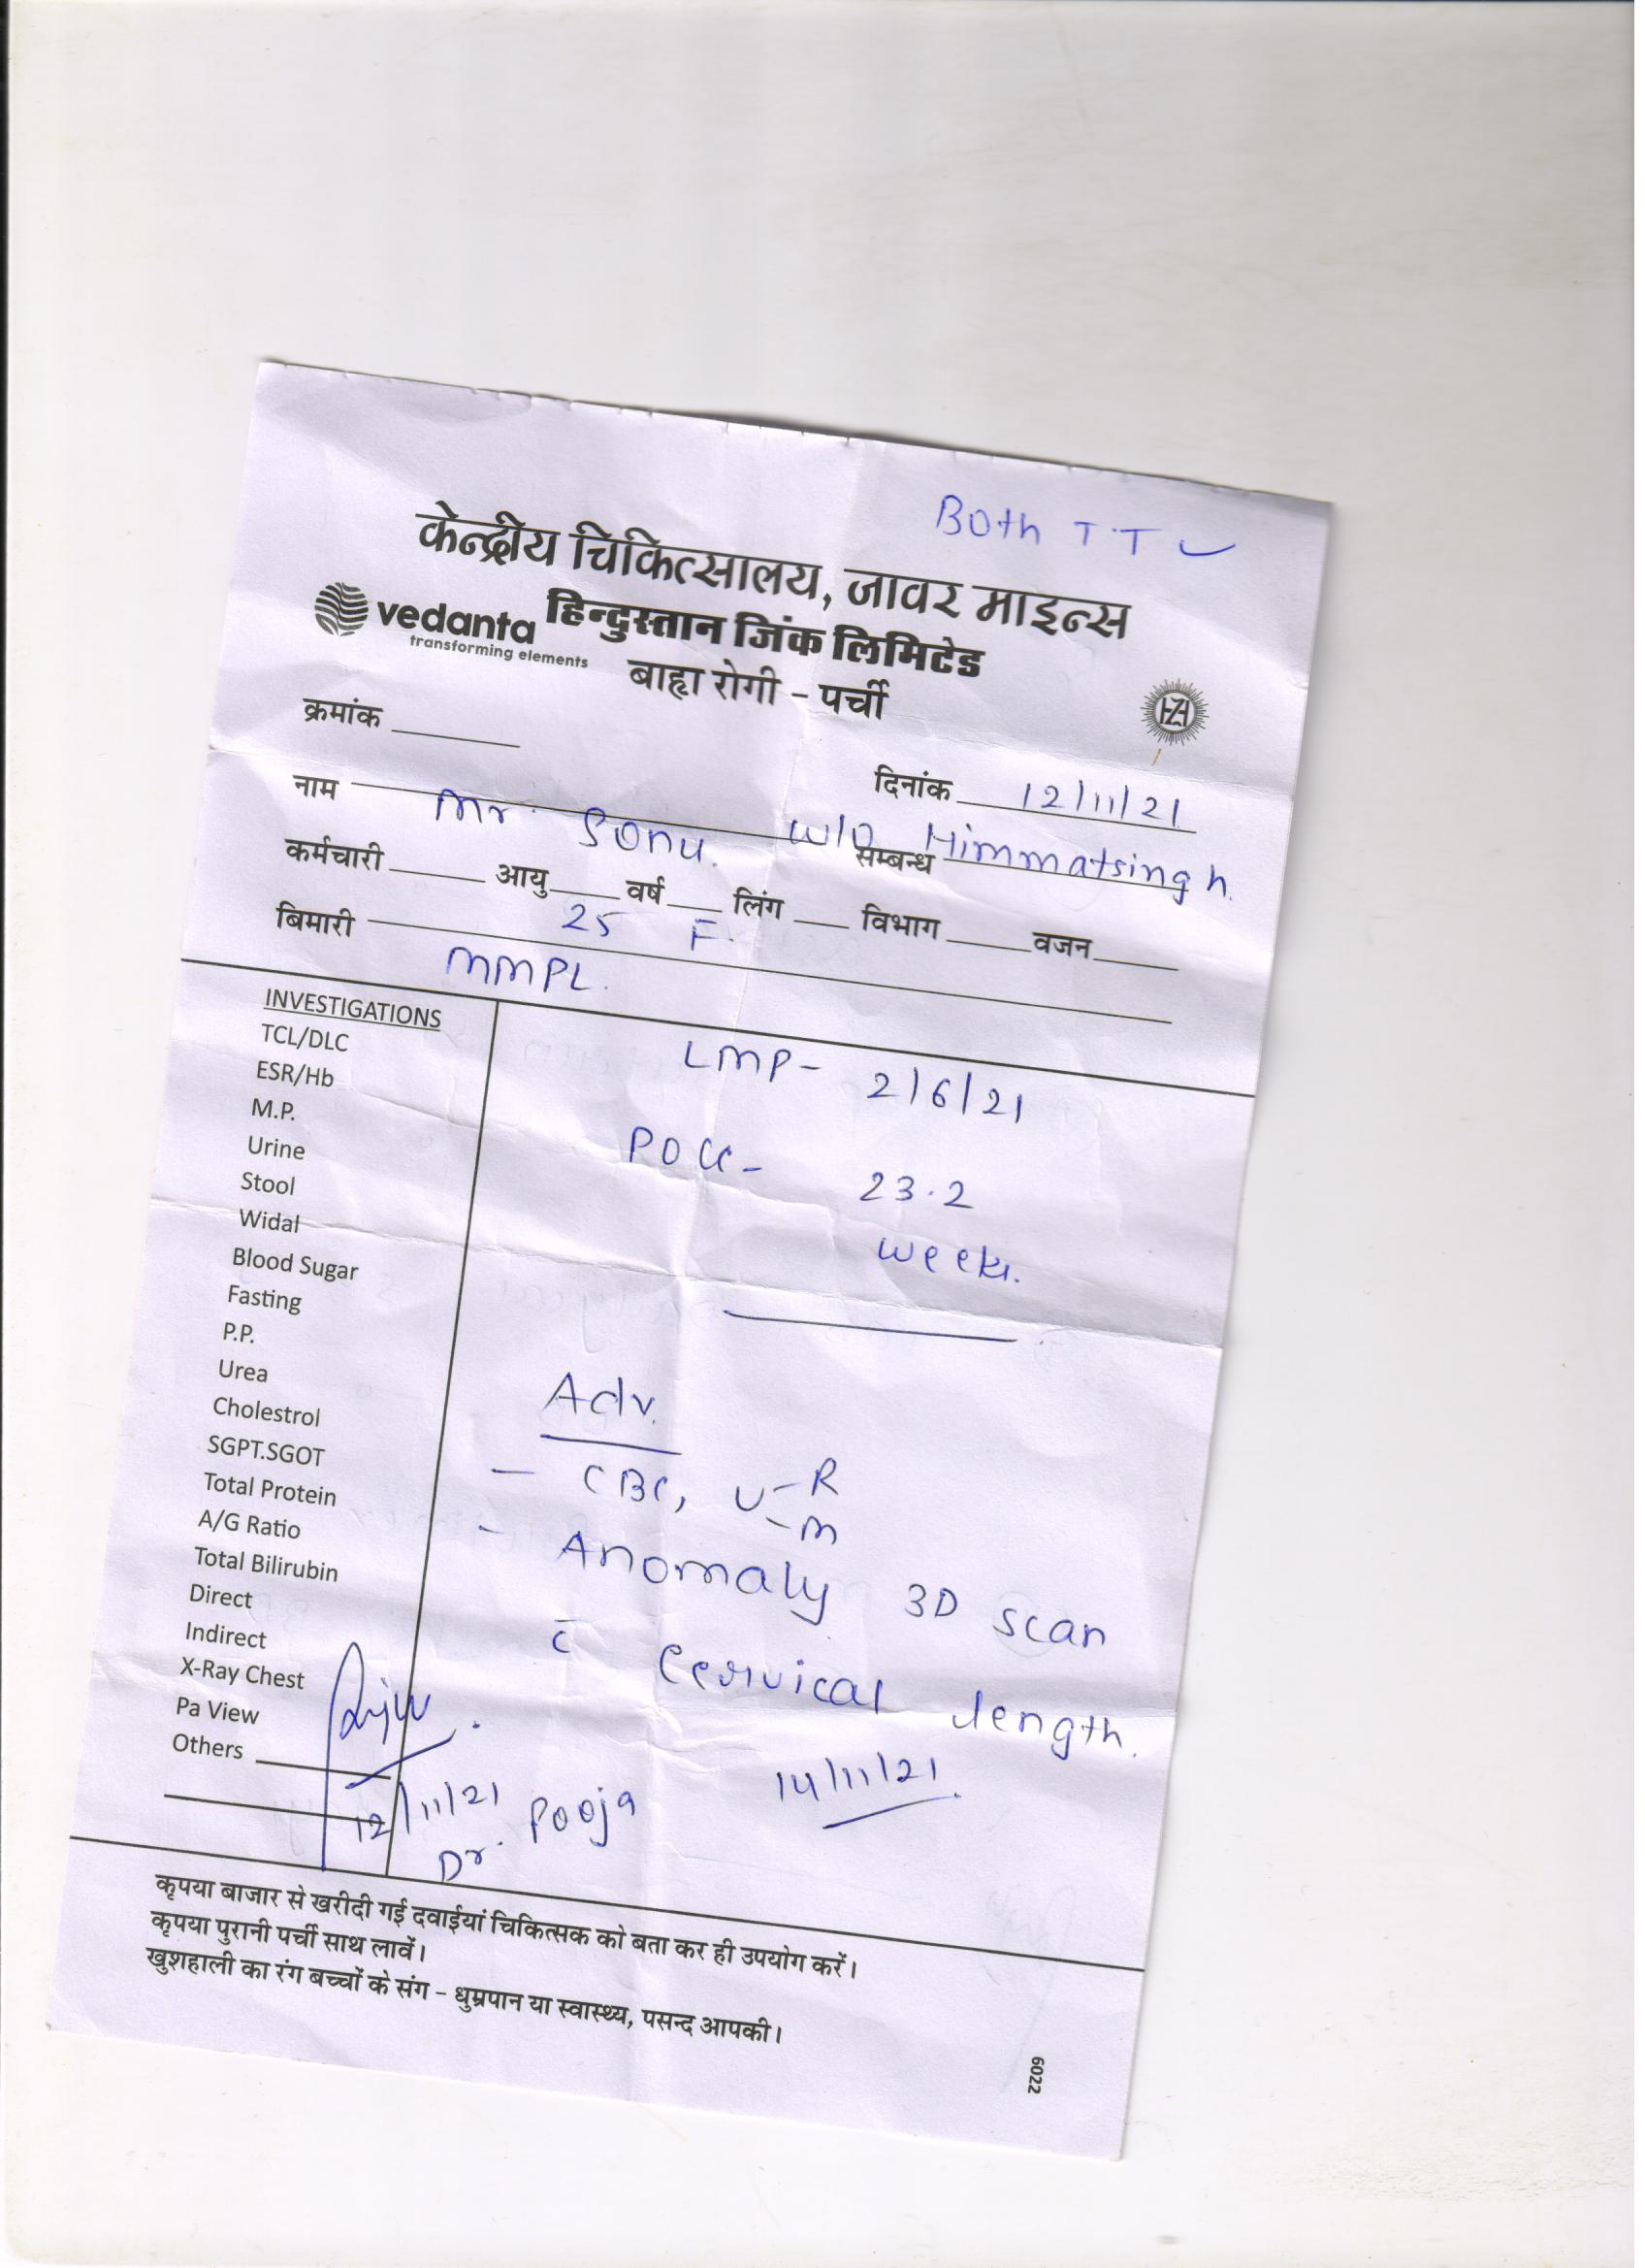 Both T.T ✓
केन्द्रीय चिकित्सालय, जावर माइन्स
vedanta हिन्दुस्तान जिंक लिमिटेड
transforming elements
बाह्य रोगी - पर्ची
HZL
क्रमांक
दिनांक 12/11/21
नाम Mr. Sonu. W/O Himmatsingh.
सम्बन्ध
कर्मचारी आयु 25 वर्ष F. लिंग विभाग वजन
बिमारी MMPL.
INVESTIGATIONS
TCL/DLC
ESR/Hb
M.P.
Urine
Stool
Widal
Blood Sugar
Fasting
P.P.
Urea
Cholestrol
SGPT.SGOT
Total Protein
A/G Ratio
Total Bilirubin
Direct
Indirect
X-Ray Chest
Pa View
Others
LMP- 2/6/21
23.2
week.
Adv.
- CBC, U-R
-M
- Anomaly 3D scan
c̄ Cervical length.
14/11/21
12/11/21
Dr. Pooja
कृपया बाजार से खरीदी गई दवाईयां चिकित्सक को बता कर ही उपयोग करें।
कृपया पुरानी पर्ची साथ लावें।
खुशहाली का रंग बच्चों के संग - धुम्रपान या स्वास्थ्य, पसन्द आपकी।
6022